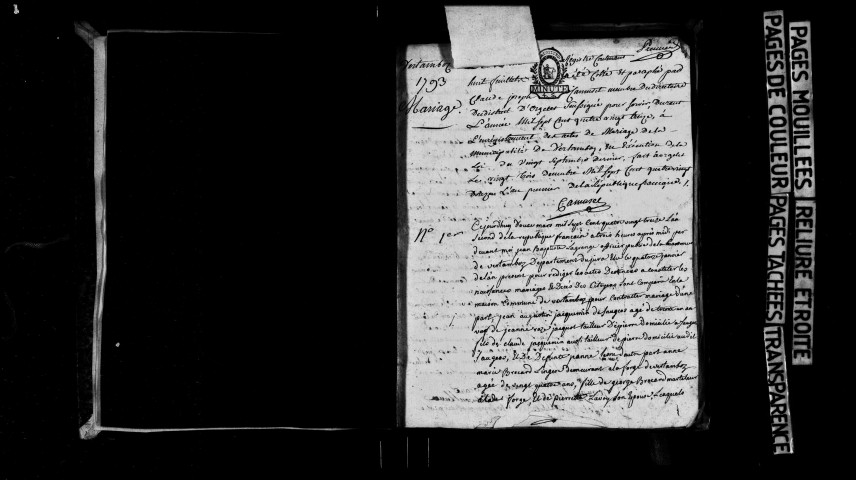 Vertamboz
1793
Mariage.
Registre Contenant
huit feuillets a été Cotté & paraphé par
Claude joseph Camuset membre du directoire
Du district d'Orgelet pour Servir Durant
L'année Mil Sept Cent quatre vingt treize, à
L'enregistrement des actes de Mariage de la
Municipalité de Vertamboz, en Exécution de la
Loi du vingt Septembre dernier, fait à orgelet
Le vingt trois décembre Mil Sept Cent quatre vingt
Douze L'an premier de la République française /.
Camuset
MINUTE
N° 1er
Cejourdhuy douze mars mil sept cent quatre vingt treize L'an
Second de la republique française a trois heures après midi par
devant moi jean Baptiste Lagrange officier public de la Commune
de vertamboz Département du jura Elu le quatorze janvier
de l'an present pour rediger les actes Destinées a constater les
naissances mariages & Décès Des Citoyens sont comparu En la
maison Commune de vertamboz pour contracter mariage d'une
part, jean augustin jacquemin de saugeos agé de trente un an
veuf de jeanne jacquet tailleur D'epierre domicilié a
fils de claude jacquemin aussi tailleur de pierre domicilié audit
Saugeos, & de Défunte jeanne d'autre part anne
marie Brocard demeurant a la forge de vertamboz
agée de vingt quatre ans, fille de george Brocard marteleur
a la de forge & de pierrette Lavry son Epouse. Lesquels
PAGES MOUILLEES RELIURE ETROITE
PAGES DE COULEUR PAGES TACHEES TRANSPARENCE